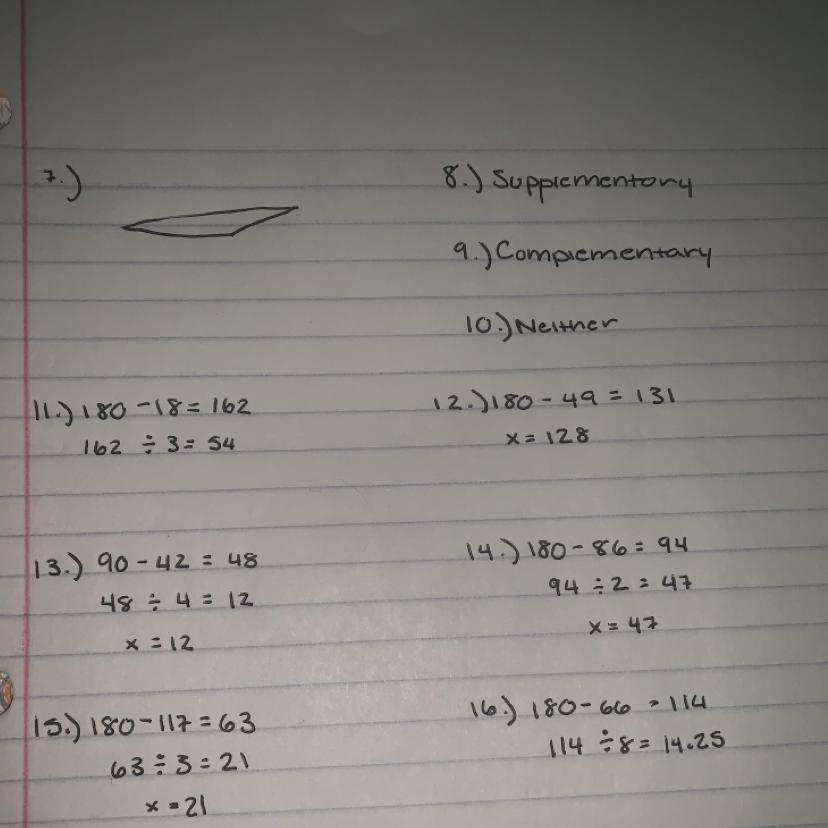 7.)
8.) Supplementory
9.) Complementary
10.) Neither
11.) 180 - 18 = 162
162 ÷ 3 = 54
12.) 180 - 49 = 131
x = 128
13.) 90 - 42 = 48
48 ÷ 4 = 12
x = 12
14.) 180 - 86 = 94
94 ÷ 2 = 47
x = 47
15.) 180 - 117 = 63
63 ÷ 3 = 21
x = 21
16.) 180 - 66 = 114
114 ÷ 8 = 14.25